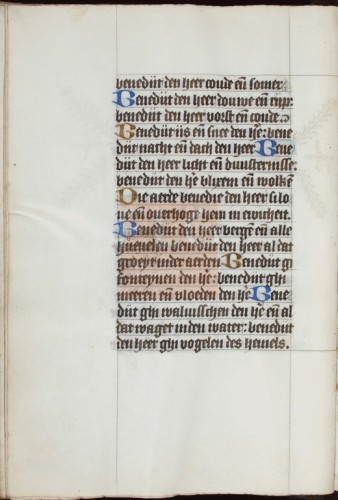 benedijt den heer coude en̄ somer
Benedijt den heer douwe en̄ rijp:
benedijt den heer vorst en̄ coude.
Benedijt ijs en̄ snee den he͞: bene
dijt nacht en̄ dach den heer Bene
dijt den heer licht en̄ duusternisse:
benedijt den he͞ blixem en̄ wolkē
Die aerde benedie den heer si lo
ue en̄ ouerhoge hem in ewicheit.
Benedijt den heer bergē en̄ alle
huuelen benedijt den heer al dat
groeyt inder aerden Benedijt gi
fonteynen den he͞: benedijt ghi
meeren en̄ vloeden den he͞ Bene
dijt ghi walvisschen den he͞ en̄ al
dat waget inden water: benedijt
den heer ghi vogelen des hemels.